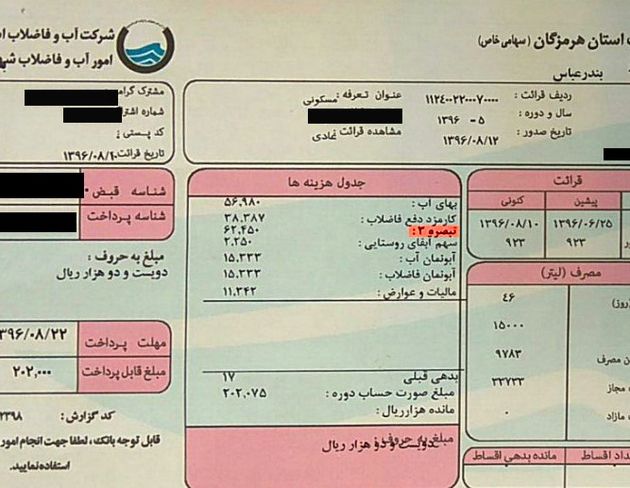 شرکت آب و فاضلاب
امور آب و فاضلاب
استان هرمزگان (سهامی خاص)
بندرعباس
ردیف قرائت : ۱۱۲۴۰۰۲۲۰۰۷۰۰۰۰
عنوان تعرفه : مسکونی
سال و دوره : ۱۳۹۶ - ۵
تاریخ صدور : ۱۳۹۶/۰۸/۱۲
مشاهده قرائت : عادی
مشترک
شماره
کد پستی :
تاریخ قرائت : ۱۳۹۶/۰۸/۱۰
شناسه قبض
شناسه پرداخت
مبلغ به حروف :
دویست و دو هزار ریال
مهلت پرداخت
۳۹۶/۰۸/۲۲
مبلغ قابل پرداخت
۲۰۲,۰۰۰
کد گزارش : ۲۳۹۸
قابل توجه بانک، لطفا جهت انجام امور
استفاده نمایید.
جدول هزینه ها
بهای آب : ۵۶,۹۸۰
کارمزد دفع فاضلاب : ۳۸,۳۸۷
تبصره ۳ : ۶۲,۴۵۰
سهم آبفای روستایی : ۲,۲۵۰
آبونمان آب : ۱۵,۳۳۳
آبونمان فاضلاب : ۱۵,۳۳۳
مالیات و عوارض : ۱۱,۳۴۲
بدهی قبلی ۱۷
مبلغ صورت حساب دوره : ۲۰۲,۰۷۵
مانده هزارریال :
مبلغ به حروف :
دویست و دو هزار ریال
قرائت
پیشین
کنونی
۱۳۹۶/۰۶/۲۵
۱۳۹۶/۰۸/۱۰
۹۲۳
۹۲۳
مصرف (لیتر)
روز)
۴۶
۱۵۰۰۰
ن مصرف
۹۷۸۳
مجاز
۳۳۷۳۳
مازاد
۰
داد اقساط
مانده بدهی اقساط